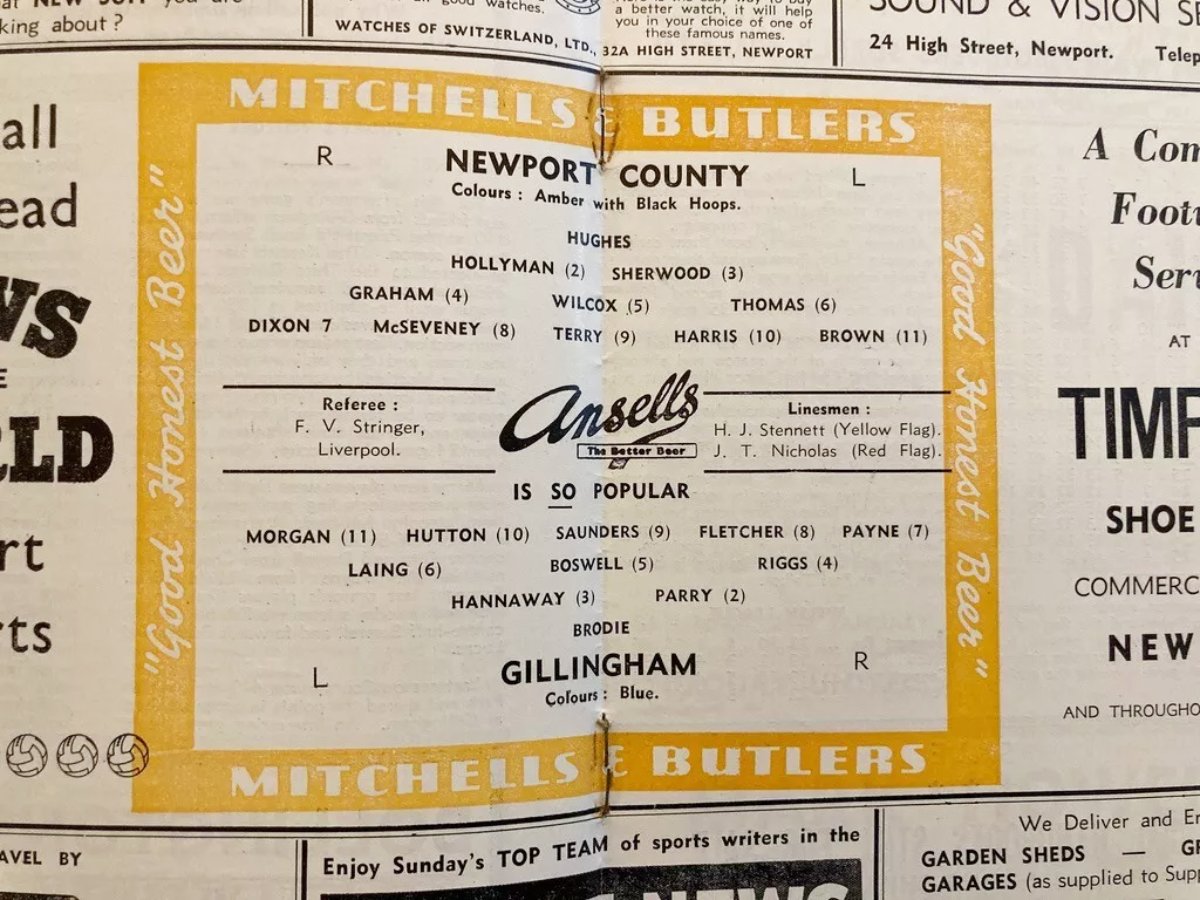 NEW SUIT you are
king about?
good watches.
WATCHES OF SWITZERLAND, LTD.,
a better watch, it will help
you in your choice of one of
these famous names.
32A HIGH STREET, NEWPORT
SOUND & VISION
24 High Street, Newport.
all
ead
WS
E
RLD
rt
rts
MITCHELLS & BUTLERS
"Good Honest Beer"
R
NEWPORT COUNTY
L
Colours : Amber with Black Hoops.
HUGHES
HOLLYMAN (2) SHERWOOD (3)
GRAHAM (4) WILCOX (5) THOMAS (6)
DIXON 7 McSEVENEY (8) TERRY (9) HARRIS (10) BROWN (11)
Referee :
F. V. Stringer,
Liverpool.
Ansells
The Better Beer
Linesmen :
H. J. Stennett (Yellow Flag).
J. T. Nicholas (Red Flag).
IS SO POPULAR
MORGAN (11) HUTTON (10) SAUNDERS (9) FLETCHER (8) PAYNE (7)
LAING (6) BOSWELL (5) RIGGS (4)
HANNAWAY (3) PARRY (2)
BRODIE
L
GILLINGHAM
R
Colours : Blue.
"Good Honest Beer"
MITCHELLS & BUTLERS
A Com
Foot
Ser
AT
TIMP
SHOE
COMMERC
NEW
AND THROUGHO
AVEL BY
Enjoy Sunday's TOP TEAM of sports writers in the
NEWS
We Deliver and Er
GARDEN SHEDS —
GARAGES (as supplied to Supp